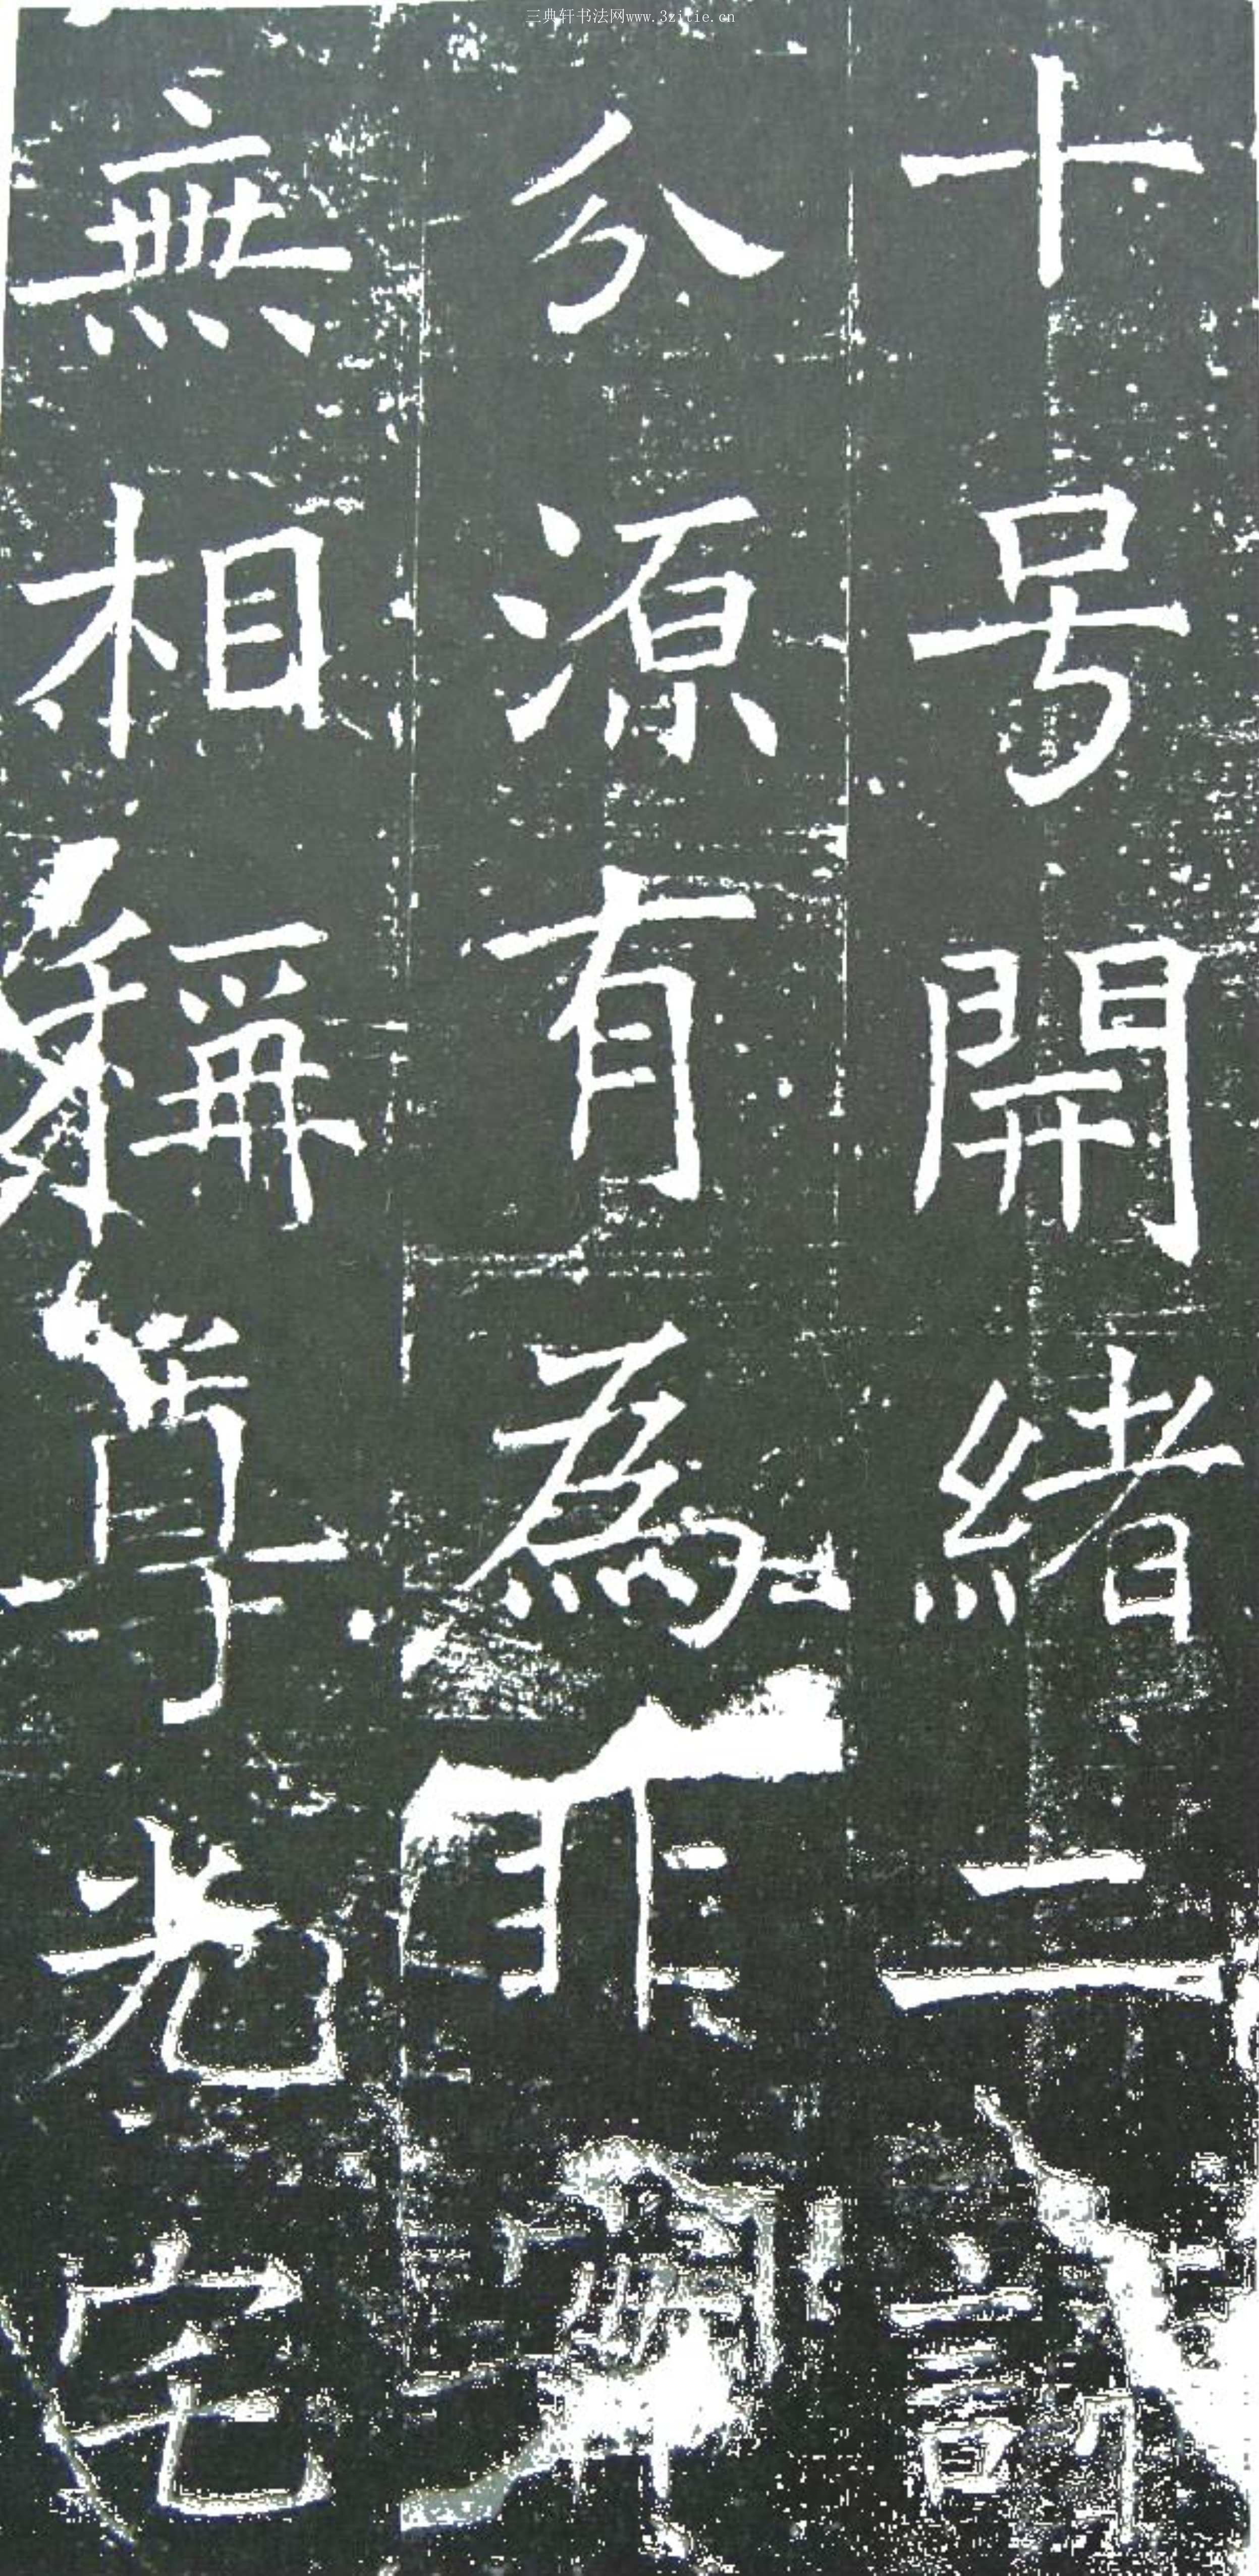 三典轩书法网www.3zitie.cn
十号開緒二
分源有為非
無相稱尊光宅